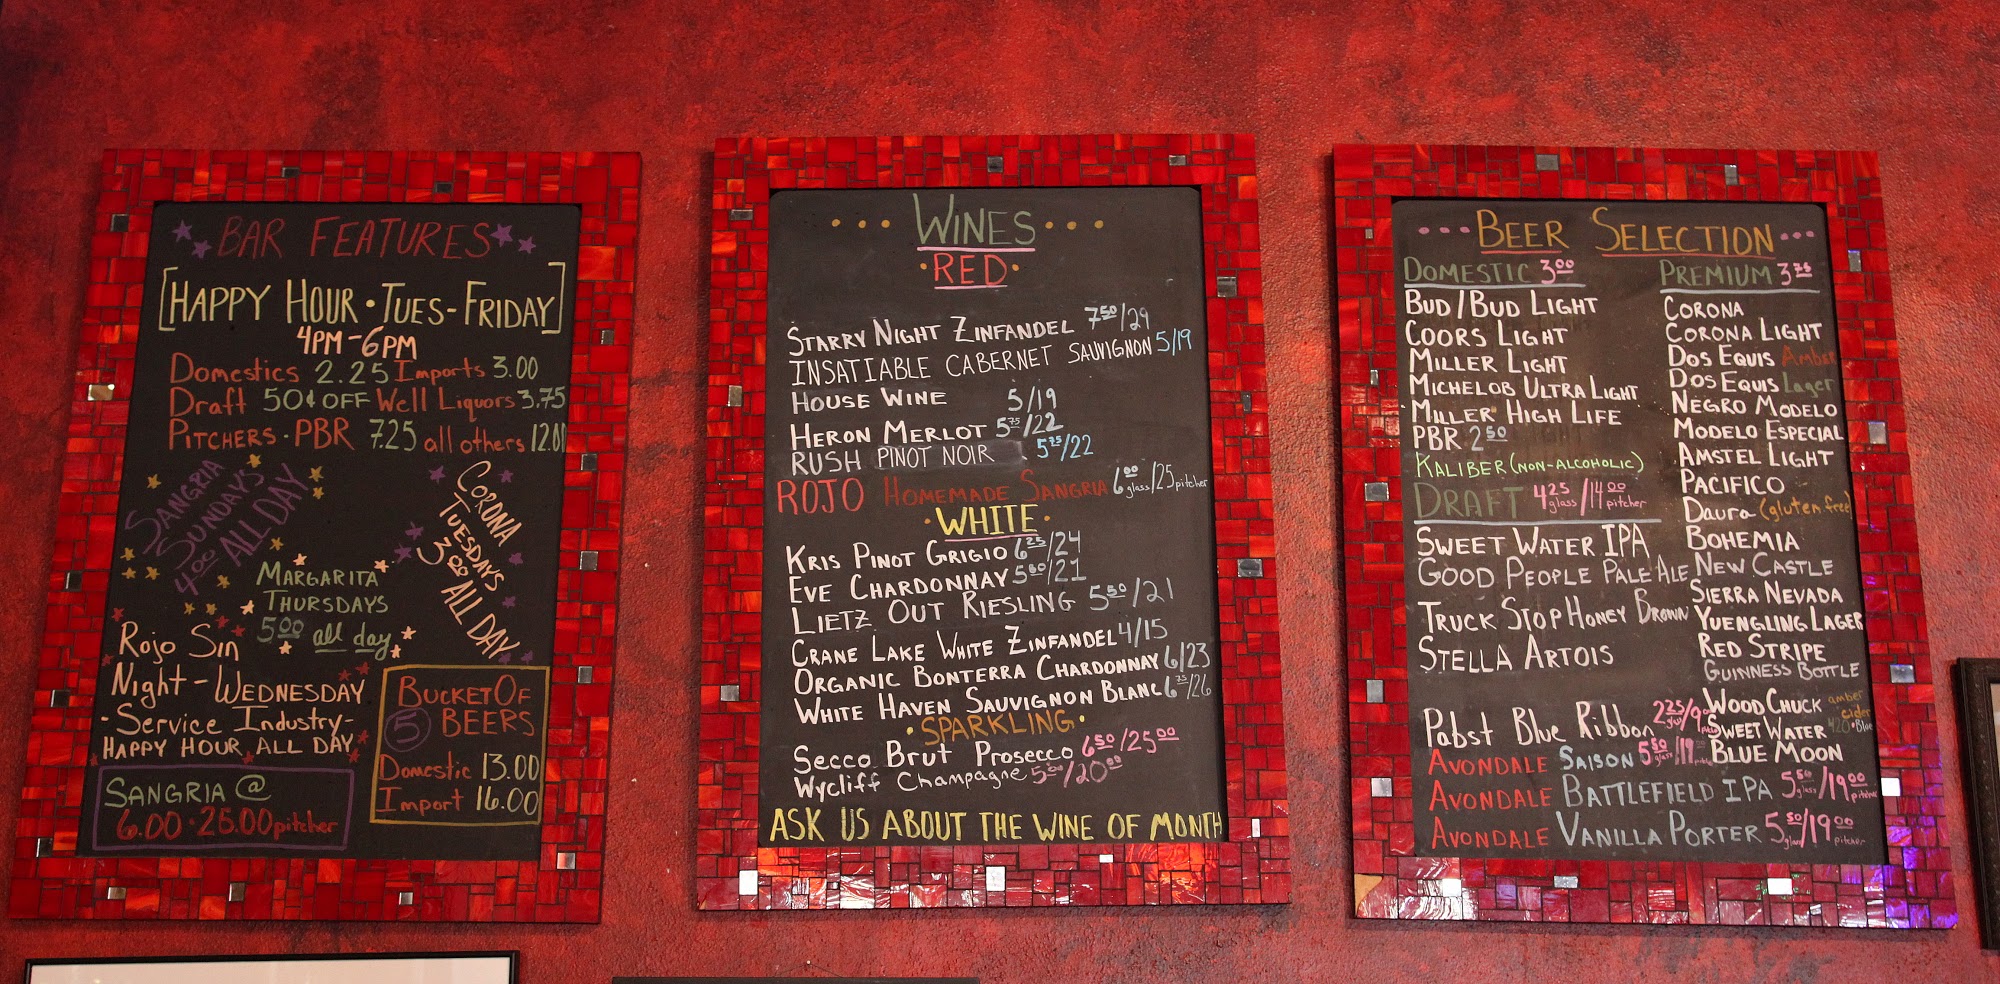 BAR FEATURES
[HAPPY HOUR • TUES-FRIDAY]
4PM-6PM
Domestics 2.25 Imports 3.00
Draft 50¢ OFF Well Liquors 3.75
PITCHERS • PBR 7.25 all others 12.00
SANGRIA
SUNDAYS
4.00 ALL DAY
CORONA
TUESDAYS
3.00 ALL DAY
MARGARITA
THURSDAYS
5.00 all day
Rojo Sin
Night - WEDNESDAY
- Service Industry -
HAPPY HOUR ALL DAY
SANGRIA @
6.00 • 25.00 pitcher
BUCKET OF
5 BEERS
Domestic 13.00
Import 16.00
WINES
• RED •
STARRY NIGHT ZINFANDEL 7.50/29
INSATIABLE CABERNET SAUVIGNON 5/19
HOUSE WINE 5/19
HERON MERLOT 5.75/22
RUSH PINOT NOIR 5.75/22
ROJO HOMEMADE SANGRIA 6.00 glass/25 pitcher
• WHITE •
KRIS PINOT GRIGIO 6.25/24
EVE CHARDONNAY 5.50/21
LIETZ OUT RIESLING 5.50/21
CRANE LAKE WHITE ZINFANDEL 4/15
ORGANIC BONTERRA CHARDONNAY 6/23
WHITE HAVEN SAUVIGNON BLANC 6.75/26
• SPARKLING •
SECCO BRUT PROSECCO 6.50/25.00
Wycliff Champagne 5.50/20.00
ASK US ABOUT THE WINE OF MONTH
BEER SELECTION
DOMESTIC 3.00
BUD/BUD LIGHT
COORS LIGHT
MILLER LIGHT
MICHELOB ULTRA LIGHT
MILLER HIGH LIFE
PBR 2.50
KALIBER (NON-ALCOHOLIC)
DRAFT 4.25 glass/14.00 pitcher
SWEET WATER IPA
GOOD PEOPLE PALE ALE
TRUCK STOP HONEY BROWN
STELLA ARTOIS
Pabst Blue Ribbon 2.25/9
AVONDALE SAISON 5.50/19
AVONDALE BATTLEFIELD IPA 5.50 glass/19.00 pitcher
AVONDALE VANILLA PORTER 5.50 glass/19.00 pitcher
PREMIUM 3.75
CORONA
CORONA LIGHT
DOS EQUIS Amber
DOS EQUIS Lager
NEGRO MODELO
MODELO ESPECIAL
AMSTEL LIGHT
PACIFICO
Daura (gluten free)
BOHEMIA
NEW CASTLE
SIERRA NEVADA
YUENGLING LAGER
RED STRIPE
GUINNESS BOTTLE
WOOD CHUCK amber cider
SWEET WATER 420 • Blue
BLUE MOON